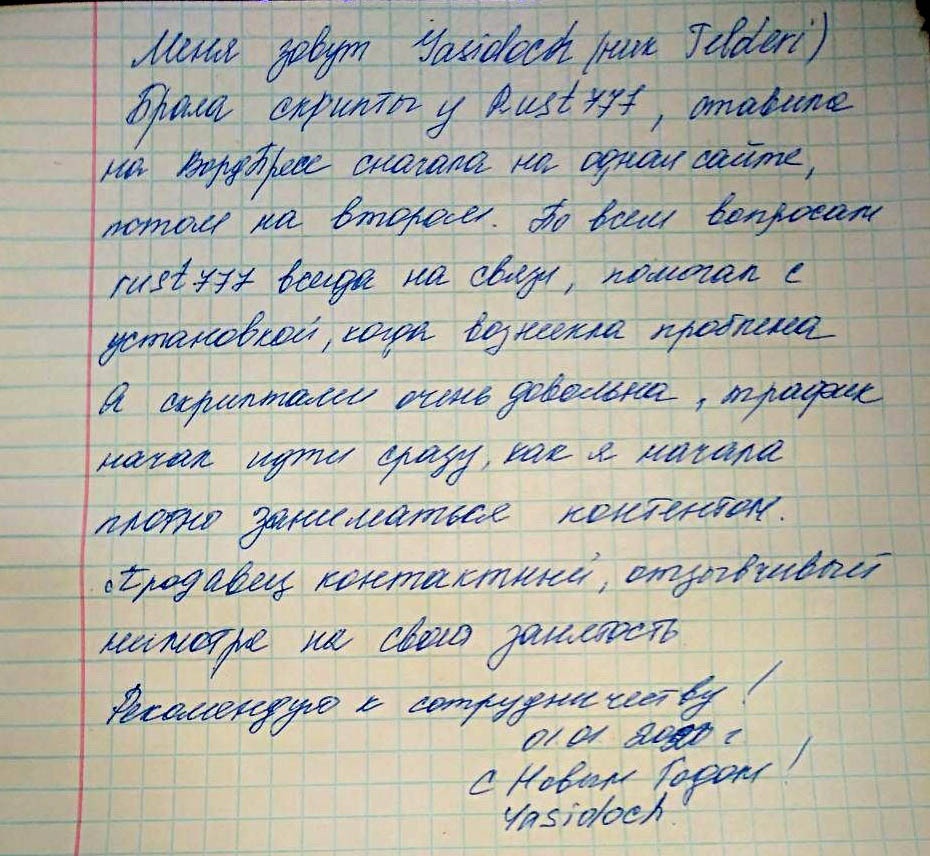 Меня зовут Yasidoch (ник Telderi)
Брала скрипты у Rust777, ставила
на ВордПресс сначала на одном сайте,
потом на втором. По всем вопросам
rust777 всегда на связи, помогал с
установкой, когда возникла проблема
А скриптами очень довольна, трафик
начал идти сразу, как я начала
плотно заниматься контентом.
Продавец контактный, отзывчивый
несмотря на свою занятость
Рекомендую к сотрудничеству!
01.01 2020 г
С Новым Годом!
Yasidoch.